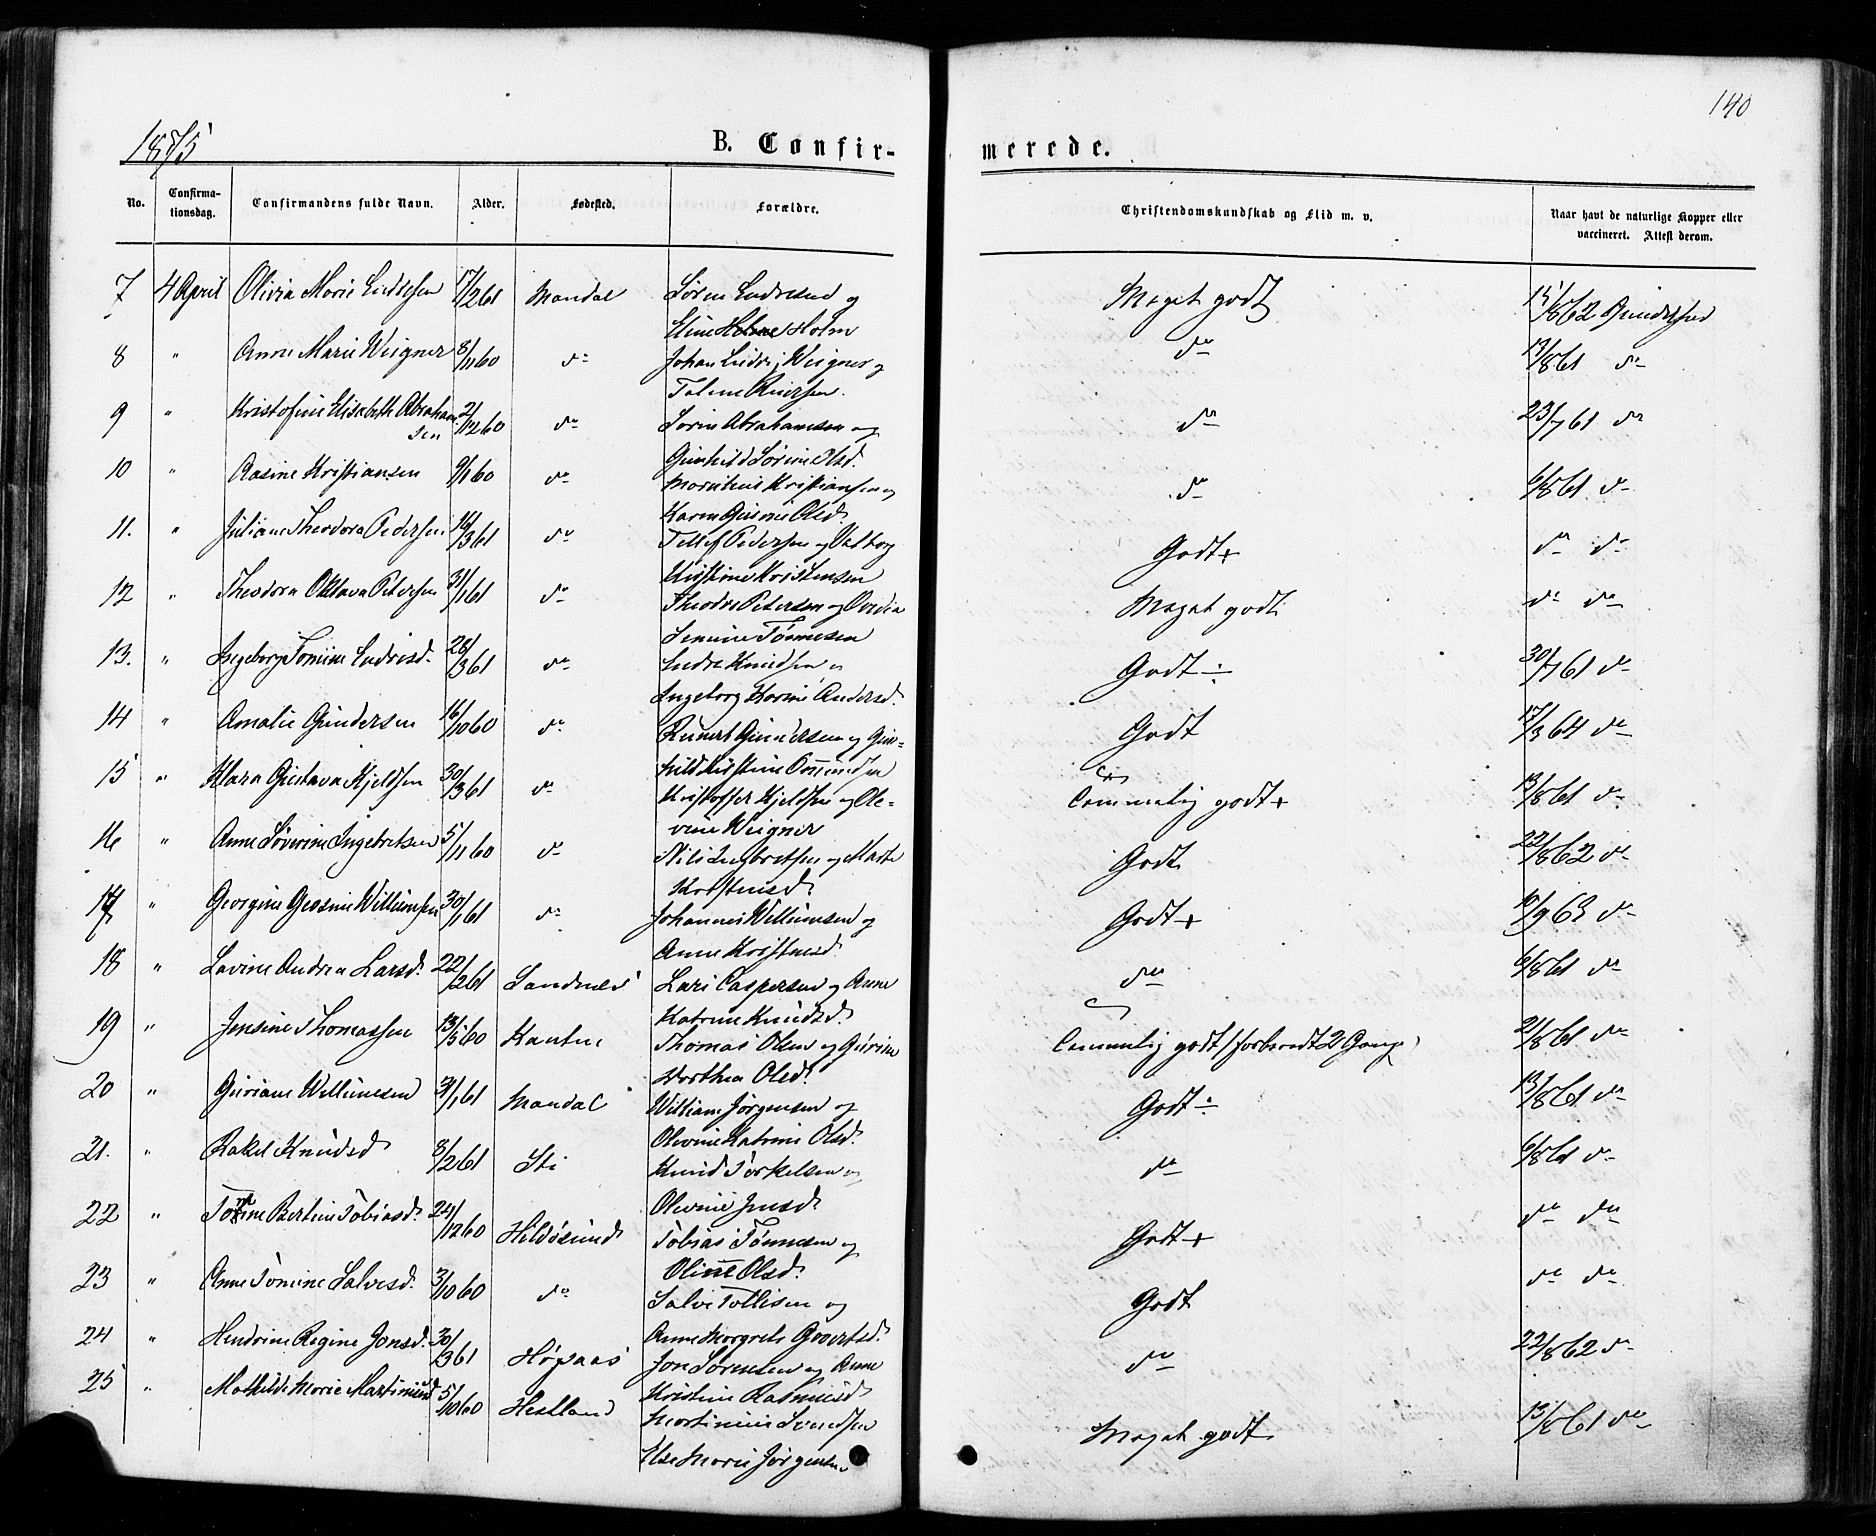 140
1875
B. Confir-merede.
No. Confirma-tionsdag. Confirmandens fulde Navn. Alder. Fødested. Forældre. Christendomskundskab og Flid m. v. Naar havt de naturlige Kopper eller vaccineret. Attest derom.
7 4 April Olivia Marie 17/2 61 Mandal Søren og Holm Meget godt 15/8 62
8 " Anne Marie Weigner 8/11 60 do Johan Weigner og do 13/8 61 do
9 " Kristofine Elisabeth Abraham sen 2/12 60 do Søren Abrahamsen og Gunhild Sørine Olsd. do 23/7 61 do
10 " Rasine Kristiansen 9/1 60 do Kristiansen og Karen Olsd. do 6/8 61 do
11. " Juliane Theodora Pedersen 16/3 61 do Tellef Pedersen og Valborg Kristine Kristensen Godt+ do do
12 " Theodora Oktava Petersen 31/1 61 do Petersen og Tønnesen Meget godt do do
13. " Ingeborg Tomine Endresd. 28/3 61 do Endre Knudsen og Ingeborg Karine Andersd. Godt÷ 30/7 61 do
14 " Amalie Gundersen 16/10 60 do Gundersen og Gun-hild Kristine Godt 17/3 64 do
15 " Klara Gustava Kjeldsen 30/3 61 do Kristoffer Kjeldsen og Ole-vine Weigner Temmelig godt+ 13/8 61 do
16 " Anne Severine Ingebretsen 5/11 60 do Nils Ingebretsen og Marte Godt 22/8 62 do
17 " Georgine Gersine Willumsen 30/1 61 do Johannes Willumsen og Anne Godt+ /9 63 do
18 " Lavine Andrea Larsd. 22/2 61 Sandnes Lars Caspersen og Anne Katrine Knudsd. do 6/8 61 do
19 " Jensine Thomassen 13/5 60 Thomas Olsen og Gurine Dorthea Olsd. Temmelig godt (forberedt 2 Gange) 21/8 61 do
20 " Guriane Willumsen 31/1 61 Mandal William Jørgensen og Olevine Katrine Olsd. Godt÷ 13/8 61 do
21. " Rakel Knudsd 8/2 61 Sti Knud Torkelsen og Olevine Jensd do 6/8 61 do
22 " Bertine Tobiasd. 24/12 60 Hildøsund Tobias Tønnesen og Oline Olsd. Godt+ do do
23 " Anne Tomine Salvesd. 3/10 60 do Salve Tollisen og Anne Margrete Godt do do
24 " Hendrine Regine Jonsd. 30/3 61 Høyaas Jon Sørensen og Anne Kristine Rasmusd do 22/8 62 do
25 " Mathilde Marie Martinusd 5/10 60 Hestland Martinius Svendsen Else Marie Jørgensen Meget godt 13/8 61 do